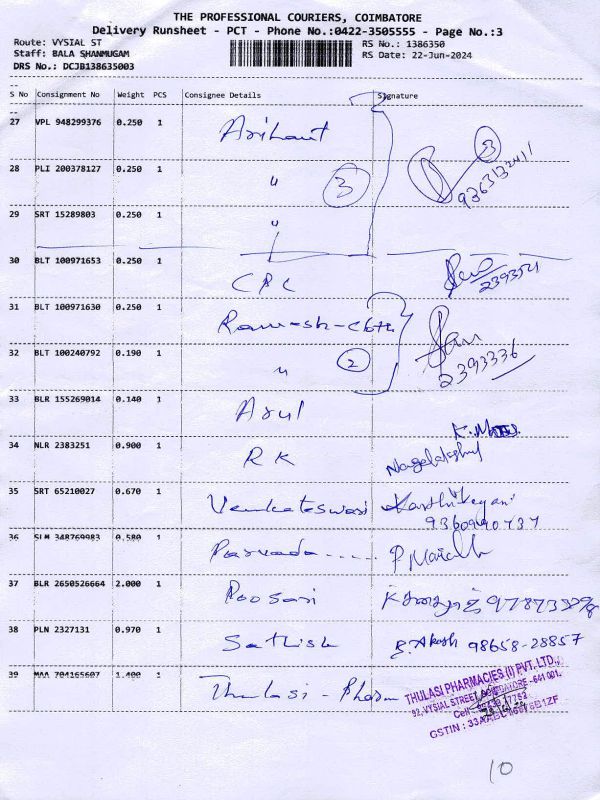 THE PROFESSIONAL COURIERS, COIMBATORE
Delivery Runsheet - PCT - Phone No.:0422-3505555 - Page No.:3
Route: VYSIAL ST
RS No.: 1386350
Staff: BALA SHANMUGAM
RS Date: 22-Jun-2024
DRS No.: DCJB138635003
S No Consignment No Weight PCS Consignee Details Signature
27 VPL 948299376 0.250 1 Arihant
28 PLI 200378127 0.250 1 " 3 3
29 SRT 15289803 0.250 1 "
30 BLT 100971653 0.250 1 CPC
31 BLT 100971630 0.250 1 Ramesh-cloth
32 BLT 100240792 0.190 1 " 2 2393336
33 BLR 155269014 0.140 1 Arul
34 NLR 2383251 0.900 1 RK
35 SRT 65210027 0.670 1 Venkateswari Karthikeyani
36 SLM 348769983 0.580 1
37 BLR 2650526664 2.000 1 Poosari
38 PLN 2327131 0.970 1 Sathish B.Akash 98658-28857
39 MAA 704165607 1.400 1 Thulasi - Pharm
THULASI PHARMACIES (I) PVT. LTD.,
92, VYSIAL STREET, COIMBATORE - 641 001.
Cell
GSTIN :
10